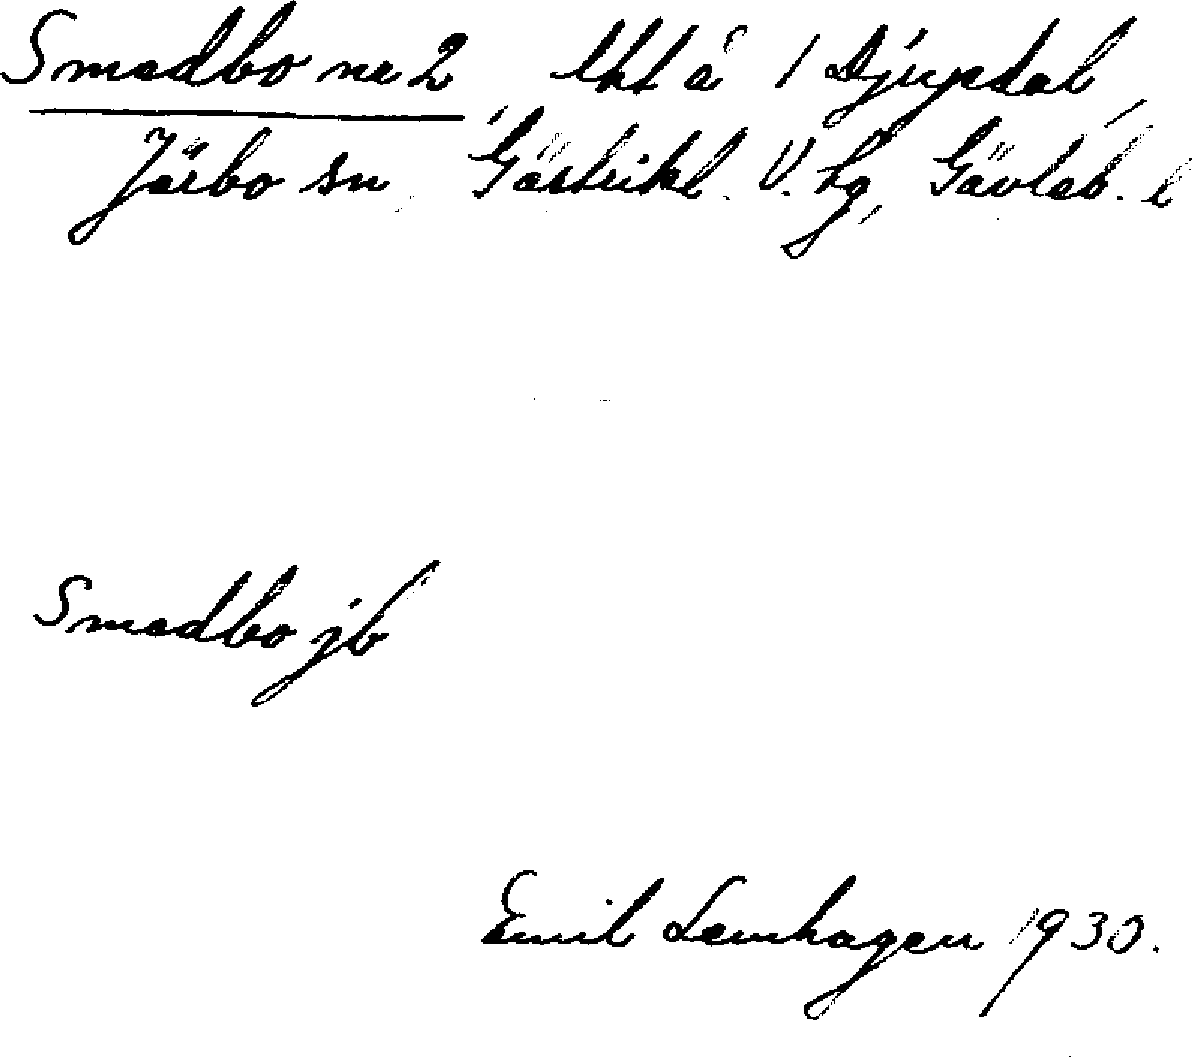 Smedbo nr 2, lht å 1 Djupdal,
Järbo sn, Gästrikl. V. tg, Gävleb. l
Smedbo jb
Emil Lemhagen 1930.